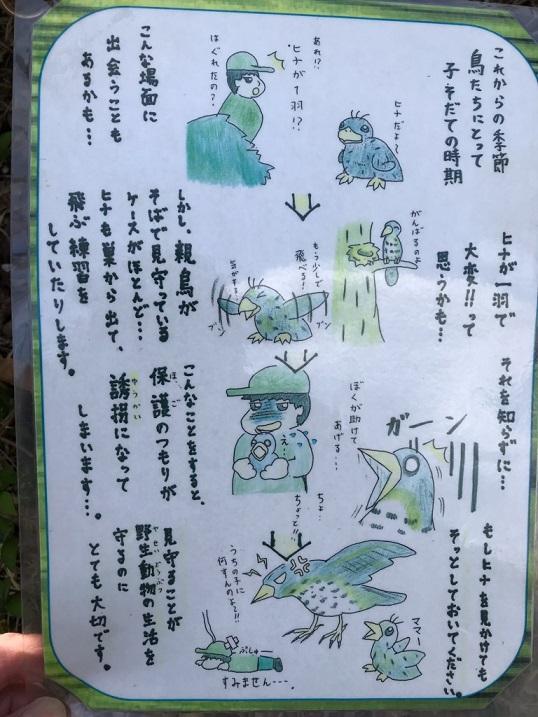 これからの季節
鳥たちにとって
子そだての時期
ヒナだよ〜
あれ!?
ヒナが1羽!?
はぐれたの?
こんな場面に
出会うことも
あるかも…
ヒナが一羽で
大変!!って
思うかも…
がんばるのよ
もう少しで
飛べる!
気がする!
ブン
ブン
しかし、親鳥が
そばで見守っている
ケースがほとんど…
ヒナも巣から出て、
飛ぶ練習を
していたりします。
それを知らずに…
ガーン
ぼくが助けて
あげる…
え…
ちょ…
ちょっと!!
こんなことをすると、
保護のつもりが
ほご
誘拐になって
ゆうかい
しまいます…。
もしヒナを見かけても
そっとしておいてください。
ママー
うちの子に
何すんのよ!!
ぷしゅ
すみません…
見守ることが
野生動物の生活を
やせいどうぶつ
守るのに
とても大切です。